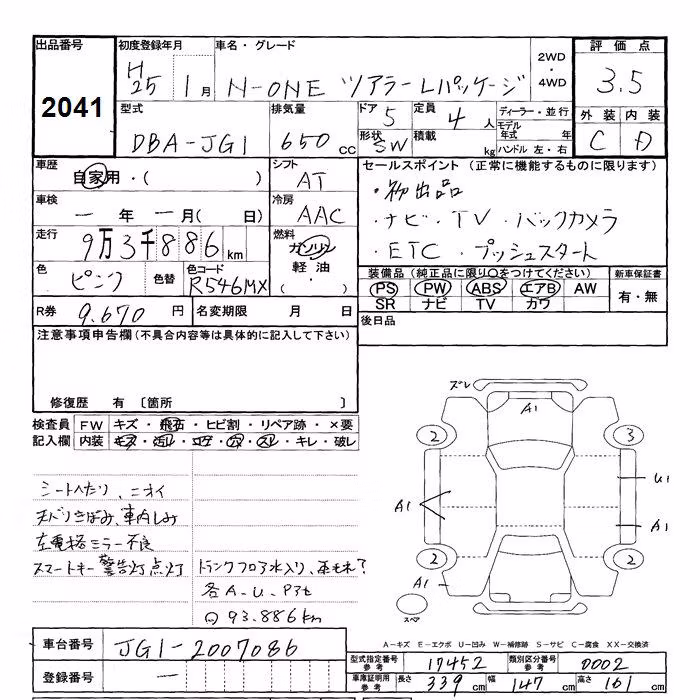 出品番号 初度登録年月 車名・グレード 2WD・4WD 評価点
2041 H25 1月 N-ONE ツアラーLパッケージ 3.5
型式 排気量 ドア 5 定員 4人 ディーラー・並行 外装 内装
DBA-JG1 650cc 形状 SW 積載 kg モデル年式 年 ハンドル 左・右 C D
車歴 シフト セールスポイント (正常に機能するものに限ります)
自家用・( ) AT ・初出品
車検 冷房 ・ナビ・TV・バックカメラ
― 年 ― 月( 日) AAC ・ETC・プッシュスタート
走行 燃料
9万3千886km ガソリン
軽油
・( )
色 色替 色コード 装備品 (純正品に限り○をつけてください) 新車保証書
ピンク R546MX PS PW ABS エアB AW 有・無
SR ナビ TV カワ
R券 9.670円 名変期限 月 日 後日品
注意事項申告欄 (不具合内容等は具体的に記入して下さい)
修復歴 有 〔箇所 〕
検査員 FW キズ・飛石・ヒビ割・リペア跡・×要
記入欄 内装 キズ・ヨゴレ・コゲ・穴・スレ・キレ・破レ
シートヘたり、ニオイ
天バリきばみ、車内しみ
左電格ミラー不良
スマートキー警告灯点灯
トランクフロア水入り、車もれ?
各A・U・P3t
93.886km
ズレ
A1
2 3
U1
A1
A1
2 2
A1
スペア
A-キズ E-エクボ U-凹み W-補修跡 S-サビ C-腐食 XX-交換済
車台番号 JG1-2007086
登録番号 ―
型式指定番号 参考 17452 類別区分番号 参考 0002
車庫証明用 参考 長さ 339cm 幅 147cm 高さ 161cm